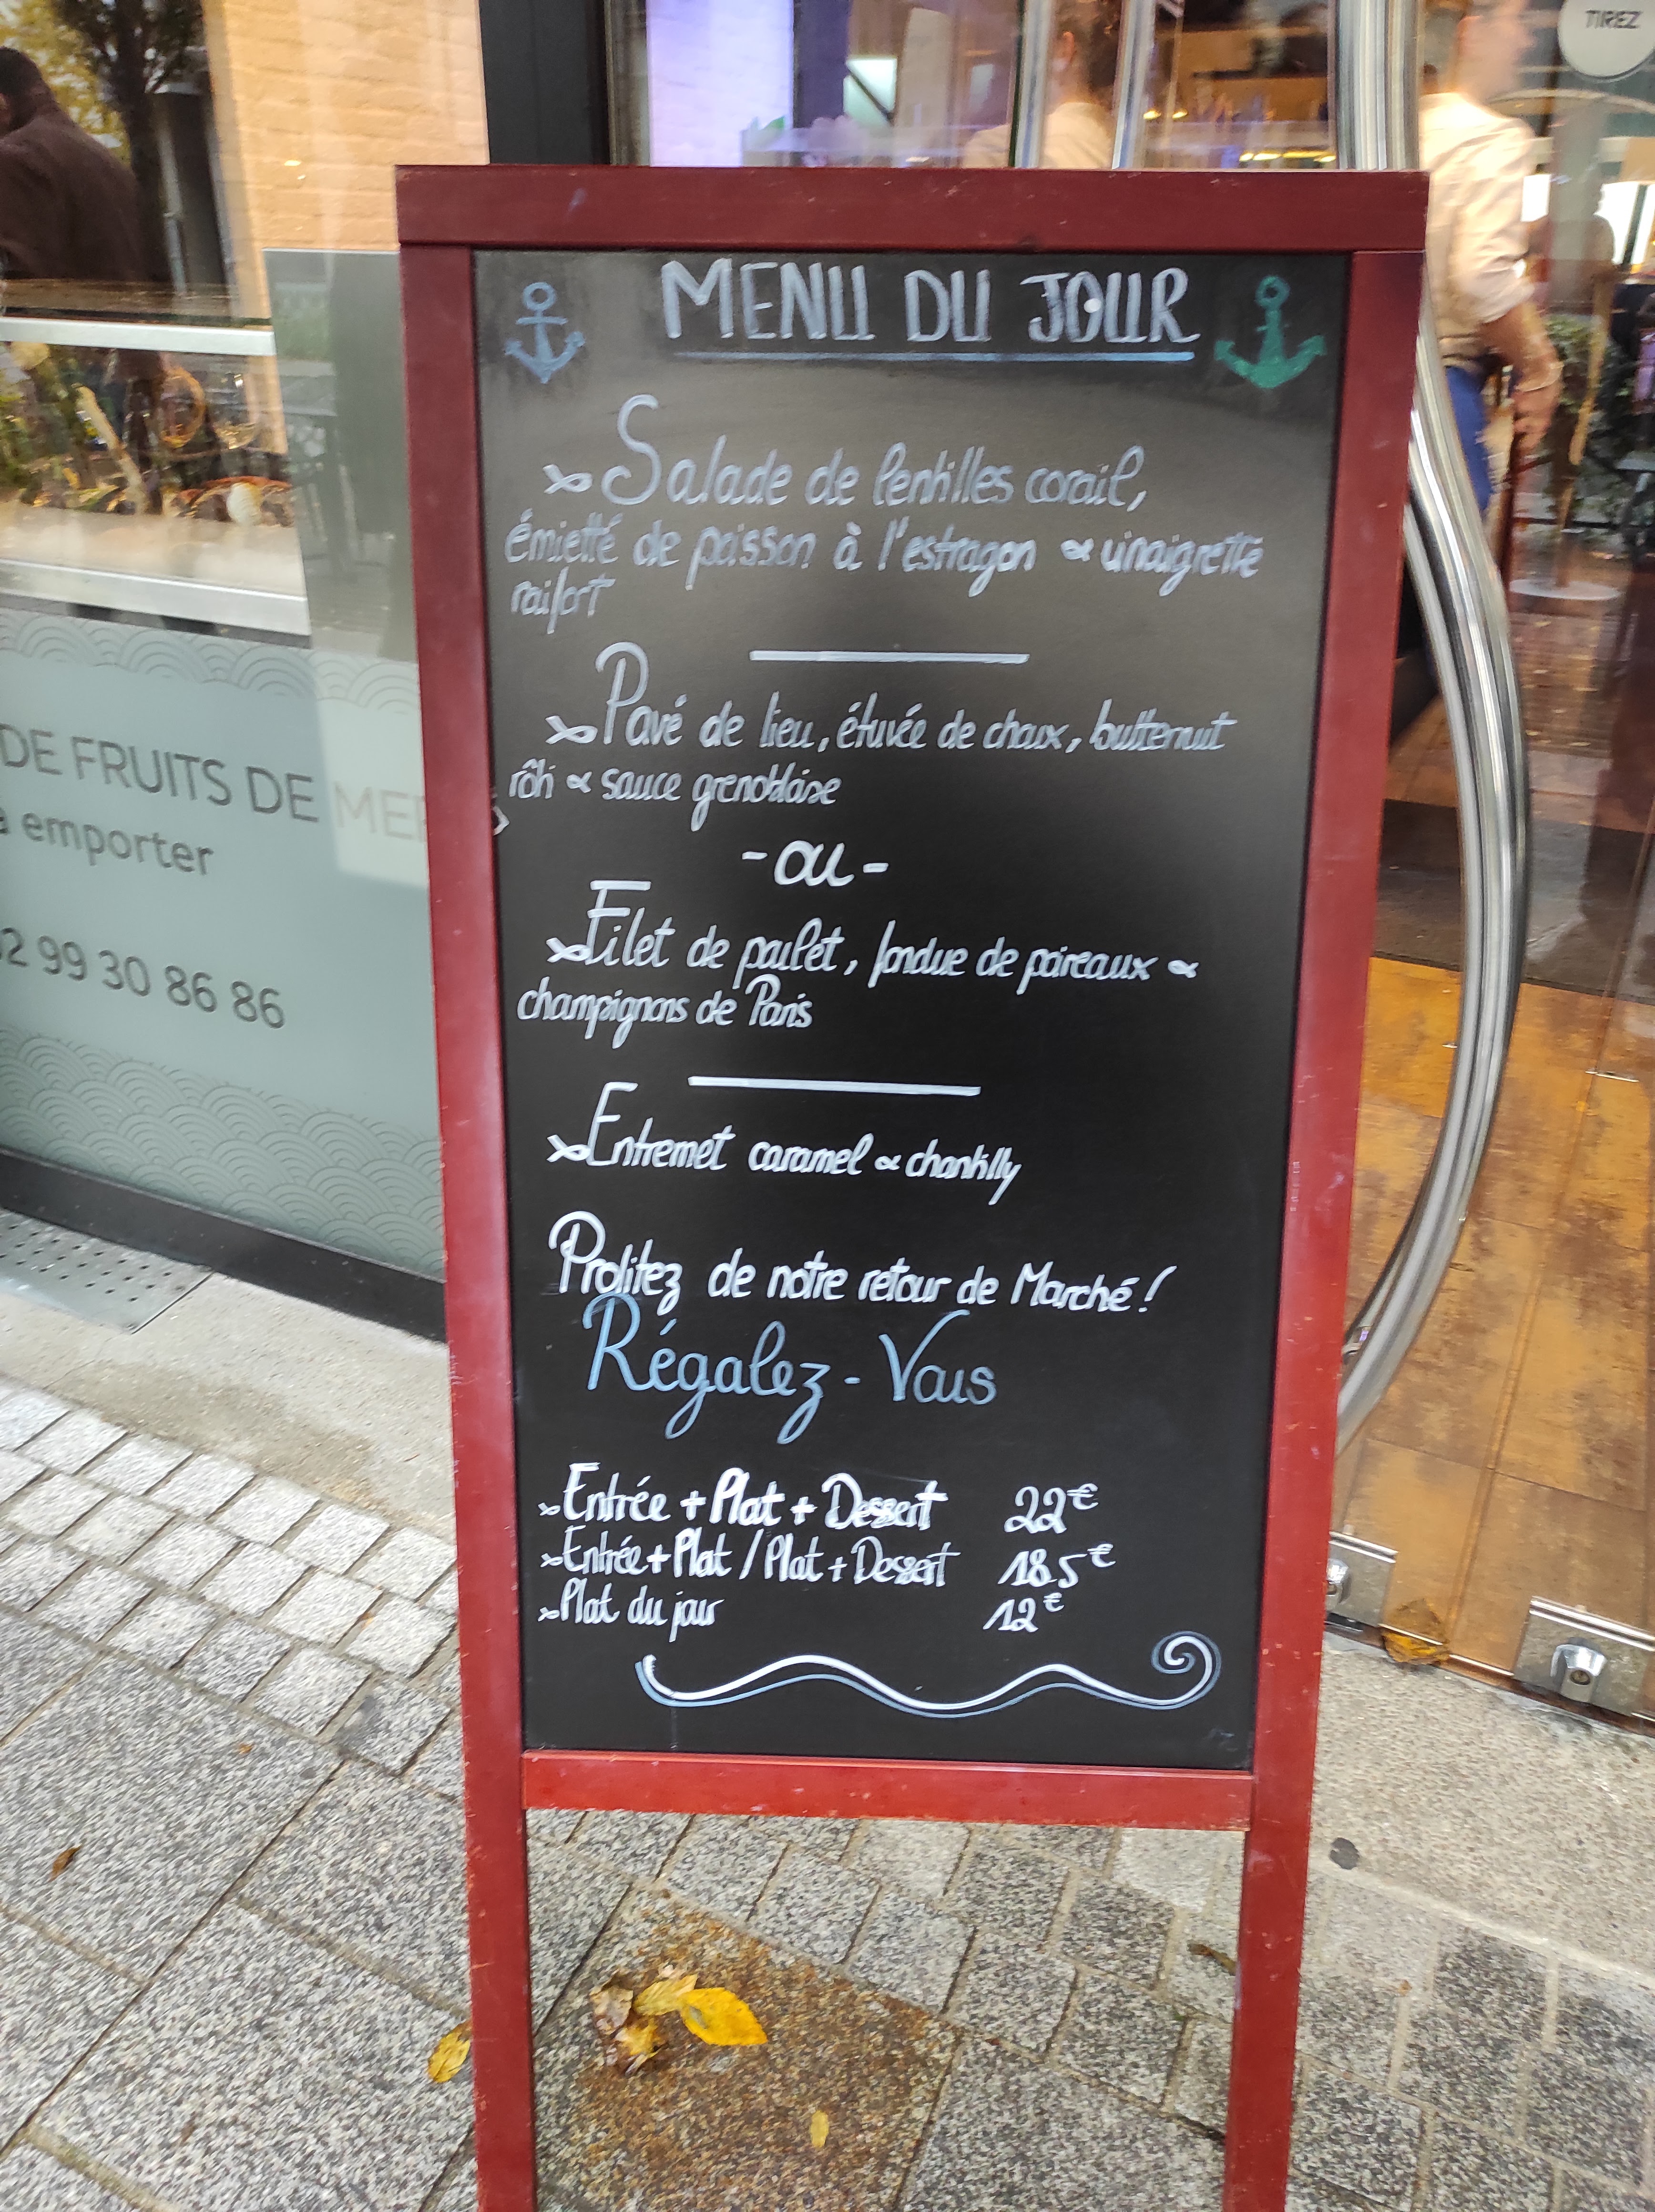 TIREZ
MENU DU JOUR
Salade de lentilles corail,
émietté de poisson à l'estragon & vinaigrette
raifort
Pavé de lieu, étuvée de choux, butternut
rôti & sauce grenobloise
- ou -
Filet de poulet, fondue de poireaux &
champignons de Paris
Entremet caramel & chantilly
Profitez de notre retour de Marché !
Régalez-Vous
Entrée + Plat + Dessert 22€
Entrée + Plat / Plat + Dessert 18.5€
Plat du jour 12€
DE FRUITS DE MER
à emporter
02 99 30 86 86